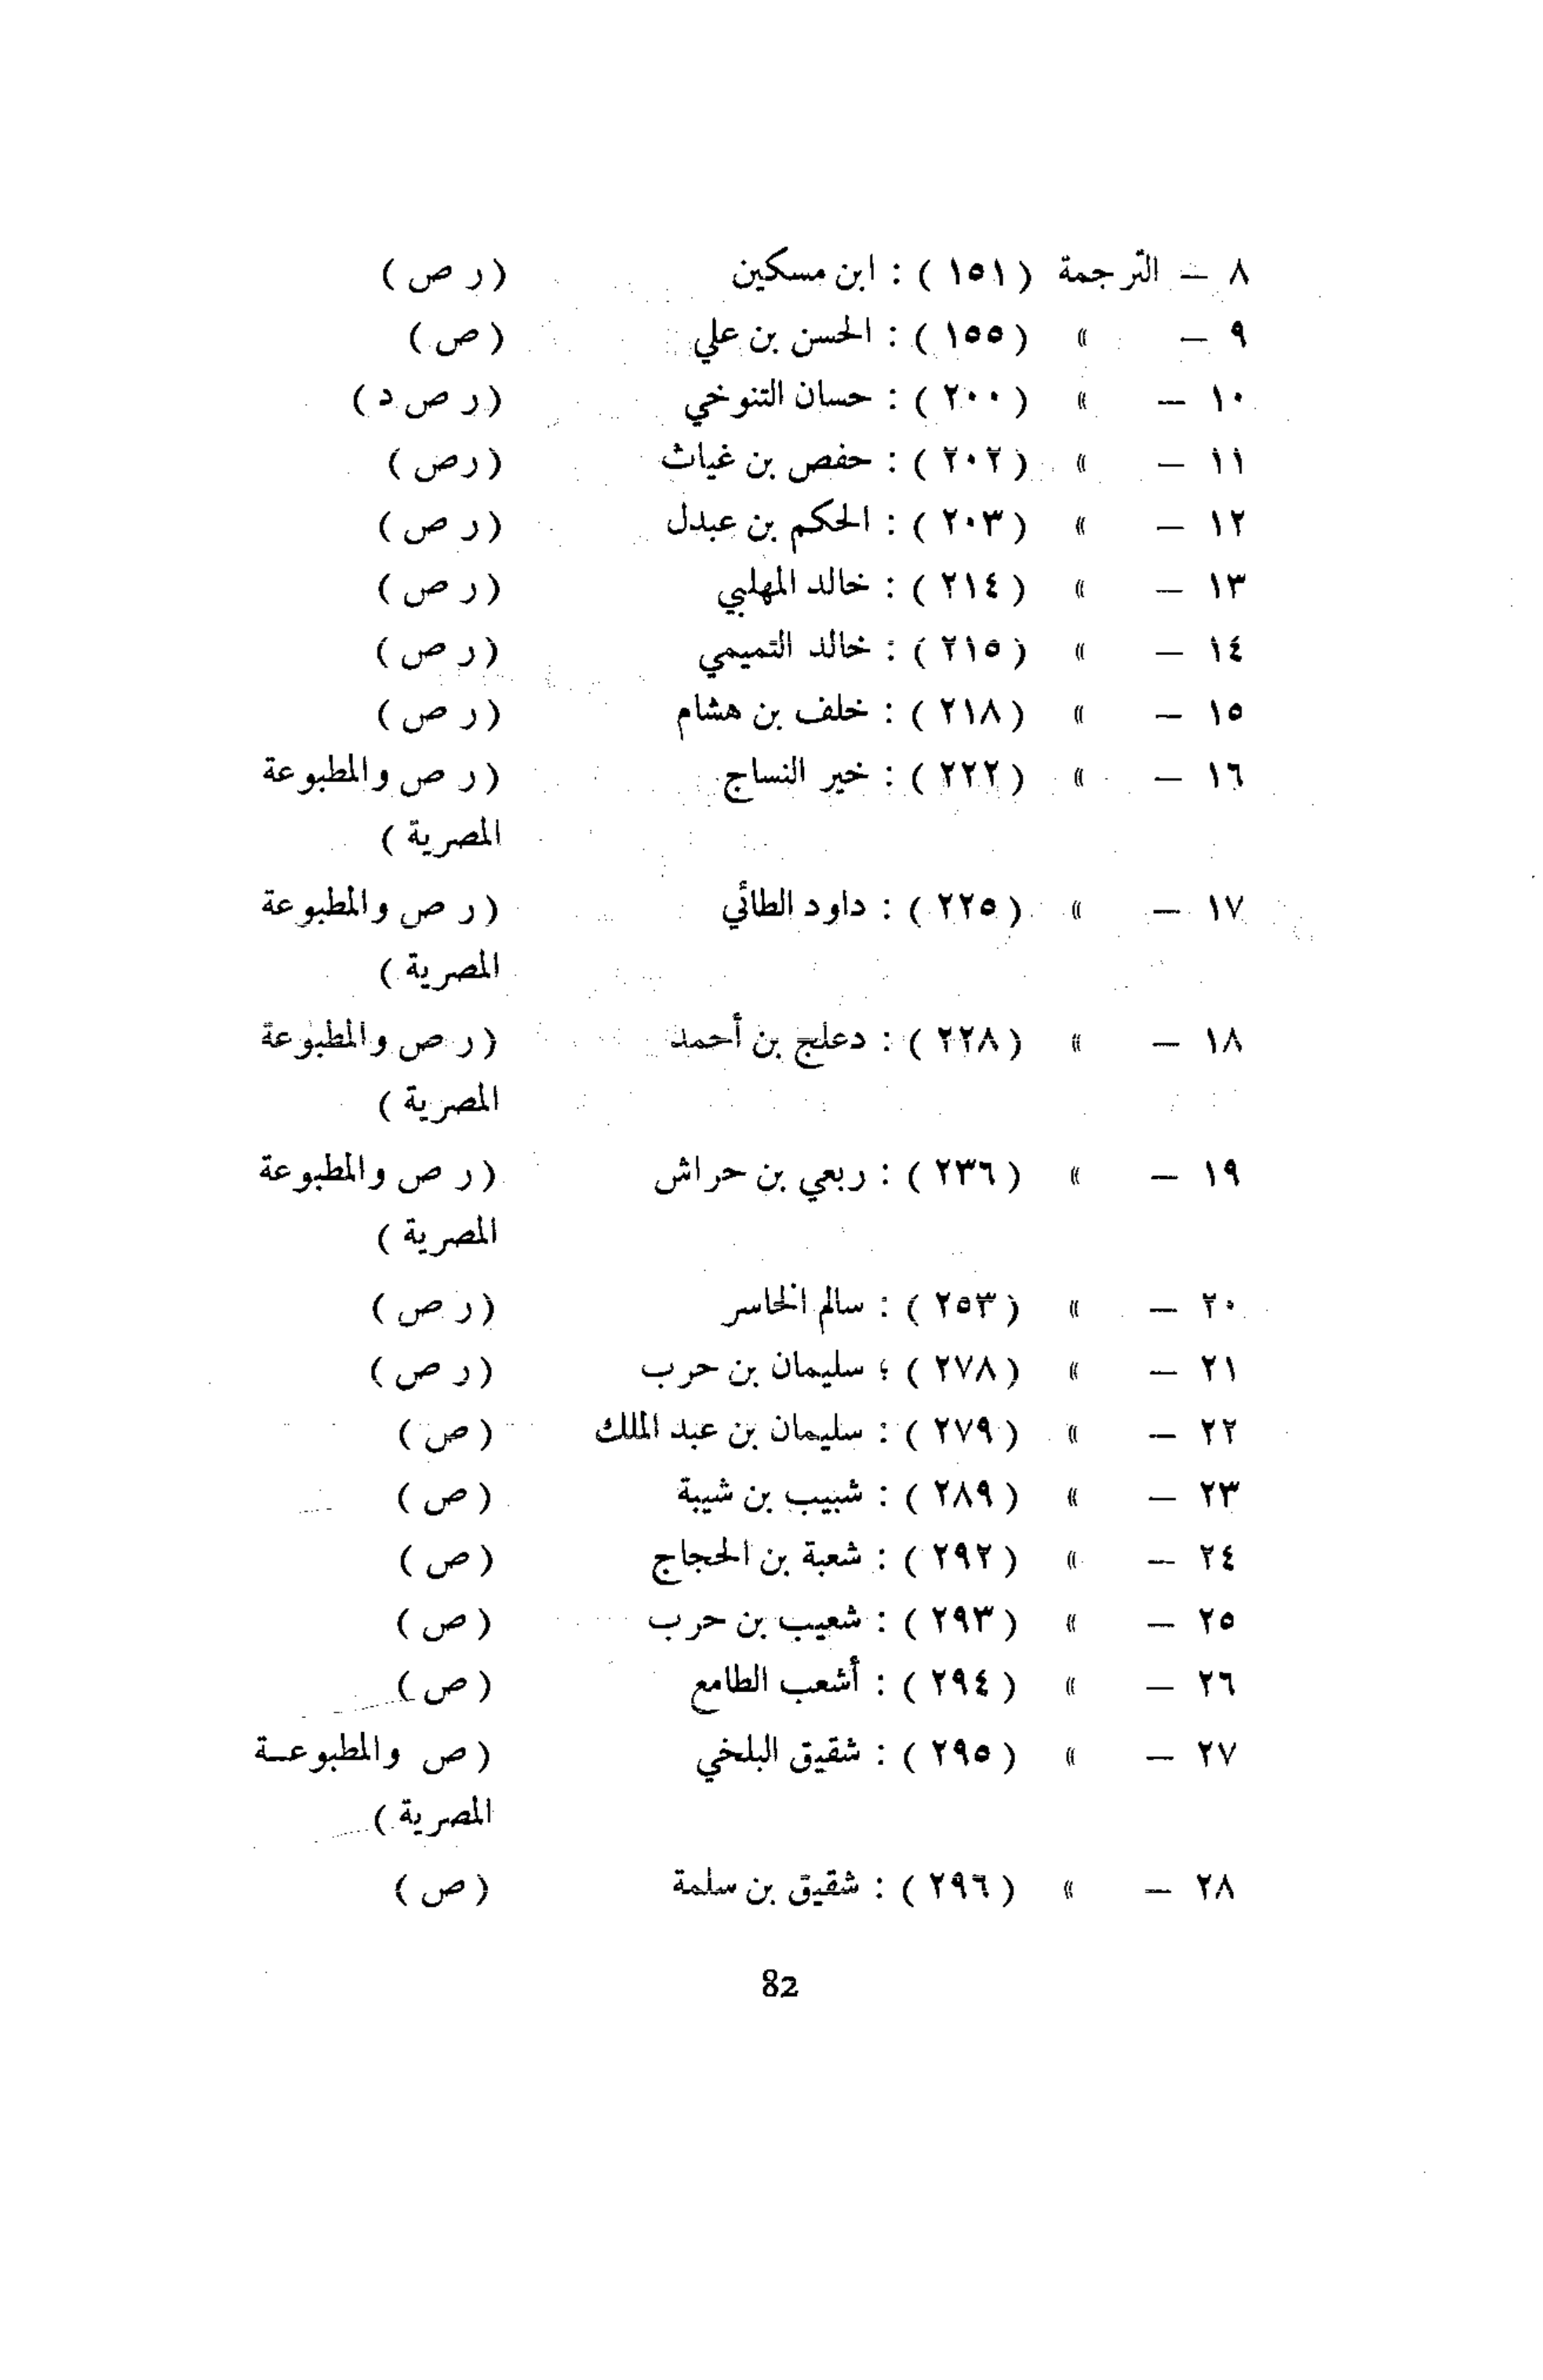 ٨ — الترجمة ( ١٥١ ) : ابن مسكين ( ر ص )
٩ — » ( ١٥٥ ) : الحسن بن علي ( ص )
١٠ — » ( ٢٠٠ ) : حسان التنوخي ( ر ص د )
١١ — » ( ٢٠٢ ) : حفص بن غياث ( رص )
١٢ — » ( ٢٠٣ ) : الحكم بن عبدل ( ر ص )
١٣ — » ( ٢١٤ ) : خالد المهلبي ( ر ص )
١٤ — » ( ٢١٥ ) : خالد التميمي ( ر ص )
١٥ — » ( ٢١٨ ) : خلف بن هشام ( ر ص )
١٦ — » ( ٢٢٢ ) : خير النساج ( ر ص والمطبوعة
المصرية )
١٧ — » ( ٢٢٥ ) : داود الطائي ( ر ص والمطبوعة
المصرية )
١٨ — » ( ٢٢٨ ) : دعلج بن أحمد ( ر ص والمطبوعة
المصرية )
١٩ — » ( ٢٣٦ ) : ربعي بن حراش ( ر ص والمطبوعة
المصرية )
٢٠ — » ( ٢٥٣ ) : سالم الخاسر ( ر ص )
٢١ — » ( ٢٧٨ ) ؛ سليمان بن حرب ( ر ص )
٢٢ — » ( ٢٧٩ ) : سليمان بن عبد الملك ( ص )
٢٣ — » ( ٢٨٩ ) : شبيب بن شيبة ( ص )
٢٤ — » ( ٢٩٢ ) : شعبة بن الحجاج ( ص )
٢٥ — » ( ٢٩٣ ) : شعيب بن حرب ( ص )
٢٦ — » ( ٢٩٤ ) : أشعب الطامع ( ص )
٢٧ — » ( ٢٩٥ ) : شقيق البلخي ( ص والمطبوعـة
المصرية )
٢٨ — » ( ٢٩٦ ) : شقيق بن سلمة ( ص )
82